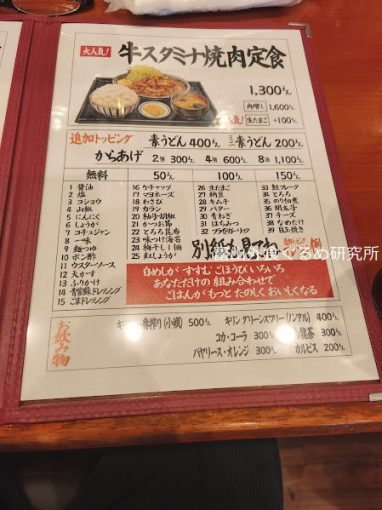 大人気! 牛スタミナ焼肉定食
1,300えん
肉増し 1,600えん
生たまご +100えん
追加トッピング 素うどん 400えん ミニ素うどん 200えん
からあげ 2コ 300えん 4コ 600えん 8コ 1,100えん
無料 50えん 100えん 150えん
1 醤油
2 塩
3 コショウ
4 山椒
5 にんにく
6 しょうが
7 コチュジャン
8 一味
9 麺つゆ
10 ポン酢
11 ウスターソース
12 天かす
13 ふりかけ
14 青紫蘇ドレッシング
15 ごまドレッシング
16 ケチャップ
17 マヨネーズ
18 わさび
19 カラシ
20 柚子胡椒
21 かつお節
22 とろろ昆布
23 味つけ海苔
24 梅干し1個
25 紅しょうが
26 生たまご
27 納豆
28 キムチ
29 バター
30 青ねぎ
31 はちみつ
33 鮭フレーク
34 とろろ
35 のり佃煮
36 明太子
37 チーズ
38 なめたけ
39 目玉焼き
別紙も見てね
白めしが すすむ ごほうびいろいろ
あなただけの 組み合わせで
ごはんが もっと たのしく おいしくなる
お飲み物
キリン 一番搾り(小瓶) 500えん
キリン グリーンズフリー(ノンアル) 400えん
コカ・コーラ 300えん
烏龍茶 300えん
バヤリース・オレンジ 300えん
カルピス 200えん
ぐるめ研究所